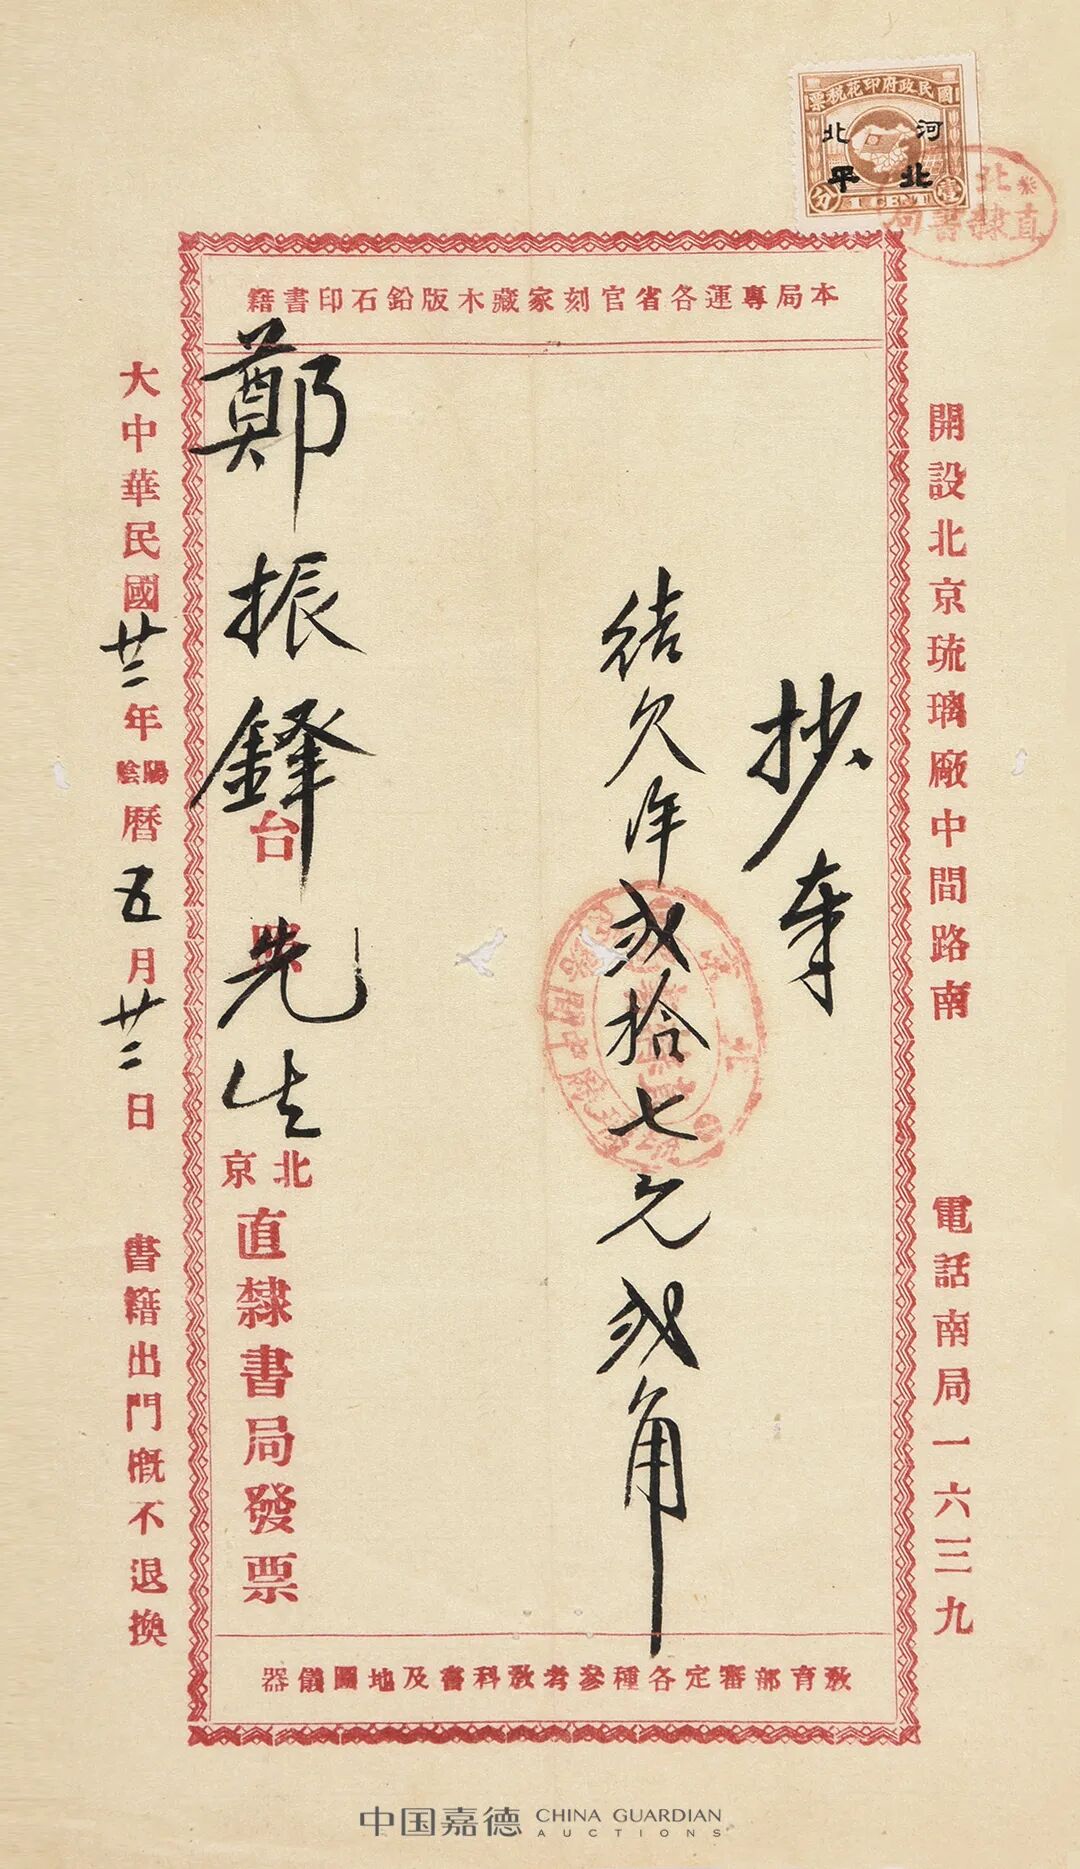 國民政府印花稅票
河北
北平
壹分
1 CENT
北
直隸書局
本局專運各省官刻家藏木版鉛石印書籍
開設北京琉璃廠中間路南
電話南局一六三九
抄奉
結欠洋貳拾七元貳角
鄭振鐸先生
台照
北京
直隸書局發票
大中華民國廿二年陽陰曆五月廿二日
書籍出門概不退換
教育部審定各種參考教科書及地圖儀器
中国嘉德 CHINA GUARDIAN
AUCTIONS